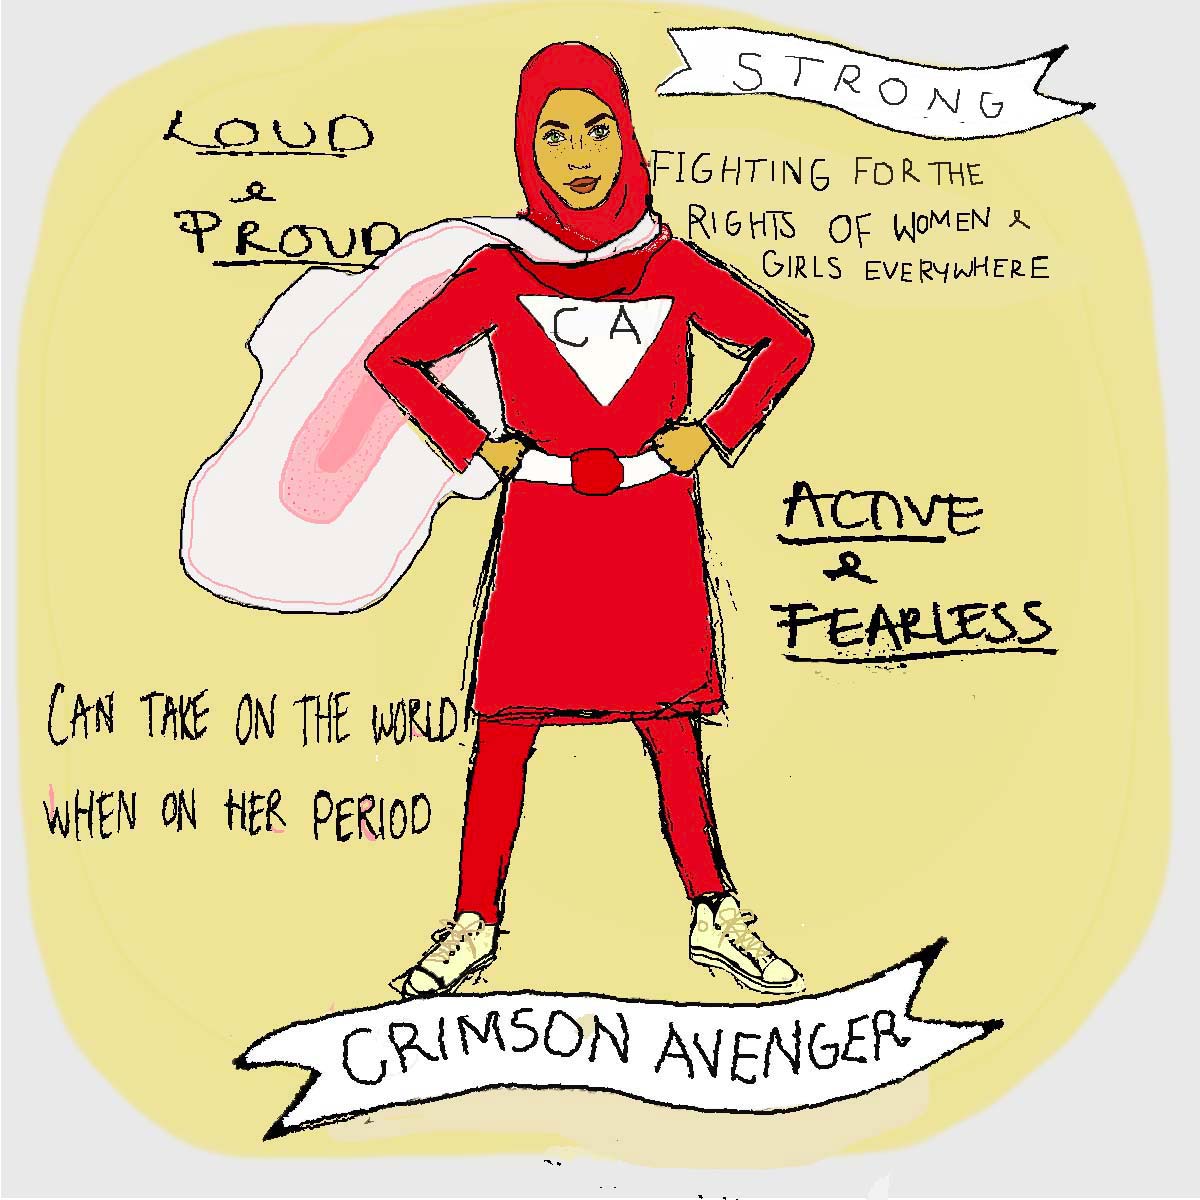 STRONG
LOUD
&
PROUD
FIGHTING FOR THE
RIGHTS OF WOMEN &
GIRLS EVERYWHERE
CA
ACTIVE
&
FEARLESS
CAN TAKE ON THE WORLD
WHEN ON HER PERIOD
CRIMSON AVENGER